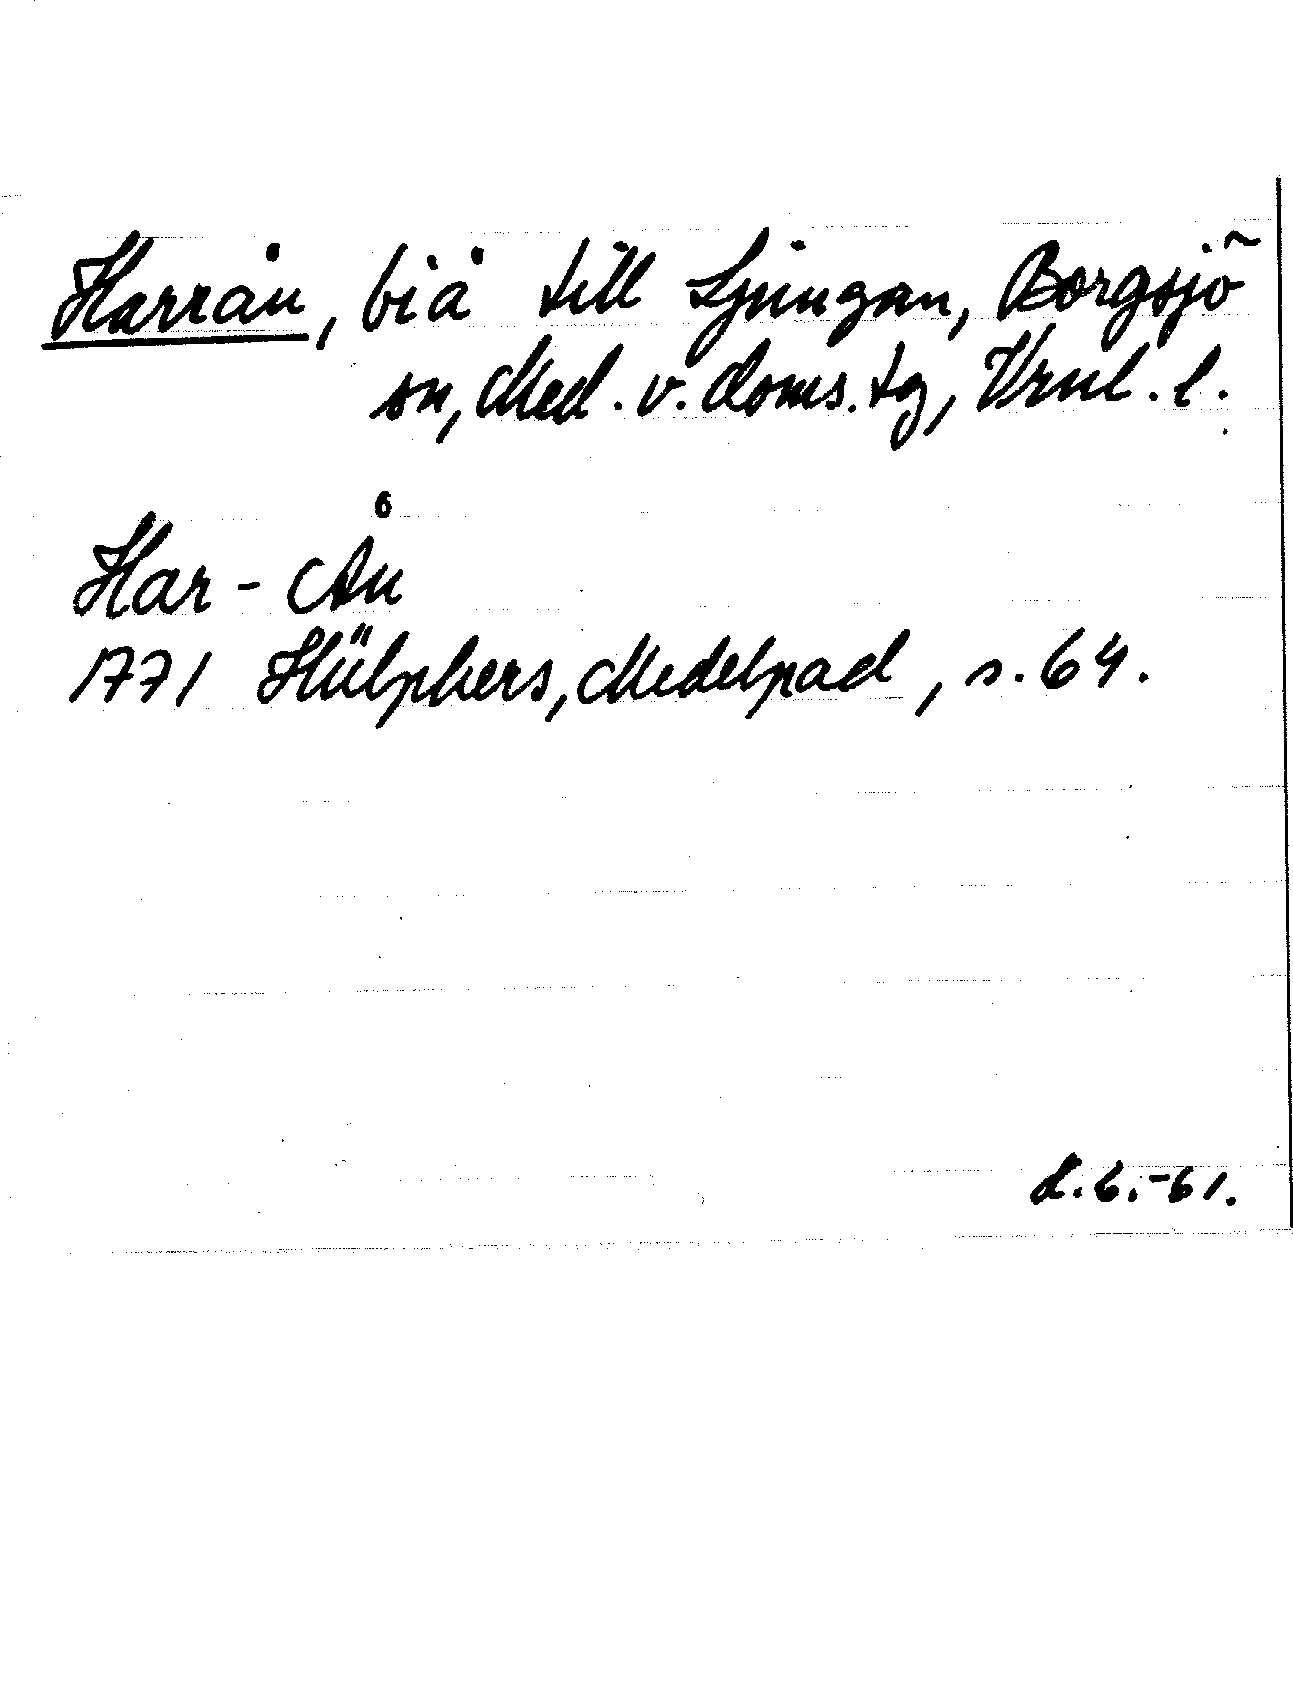 Harrån, biå till Ljungan, Borgsjö
sn, Med. v. doms. tg, Vrnl. l.
Har-Ån
1771 Hülphers, Medelpad, s. 64.
L. 6.-61.